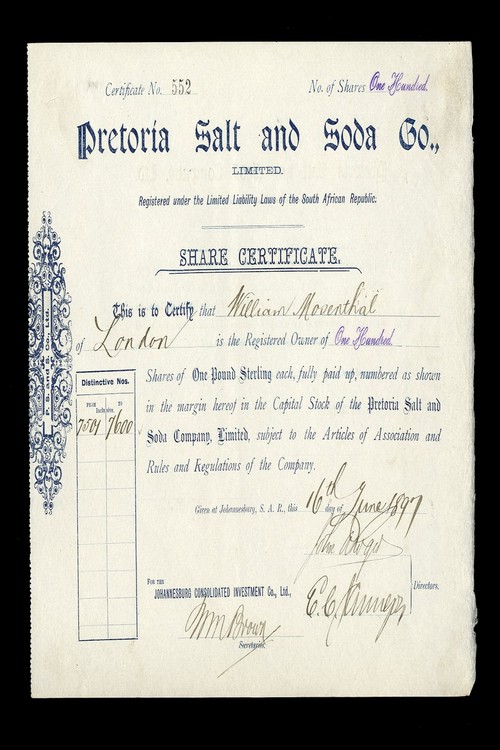 Certificate No. 552 No. of Shares One Hundred.
Pretoria Salt and Soda Co.,
LIMITED.
Registered under the Limited Liability Laws of the South African Republic.
SHARE CERTIFICATE.
This is to Certify that William Mosenthal
of London is the Registered Owner of One Hundred
Shares of One Pound Sterling each, fully paid up, numbered as shown
in the margin hereof in the Capital Stock of the Pretoria Salt and
Soda Company, Limited, subject to the Articles of Association and
Rules and Regulations of the Company.
Distinctive Nos.
FROM TO
Inclusive.
7501 7600
P. S. and S. Co. Ltd.
Given at Johannesburg, S. A. R., this 16th day of June 1897
FOR THE
JOHANNESBURG CONSOLIDATED INVESTMENT Co., Ltd.,
Directors.
Wm Brown
Secretaries.